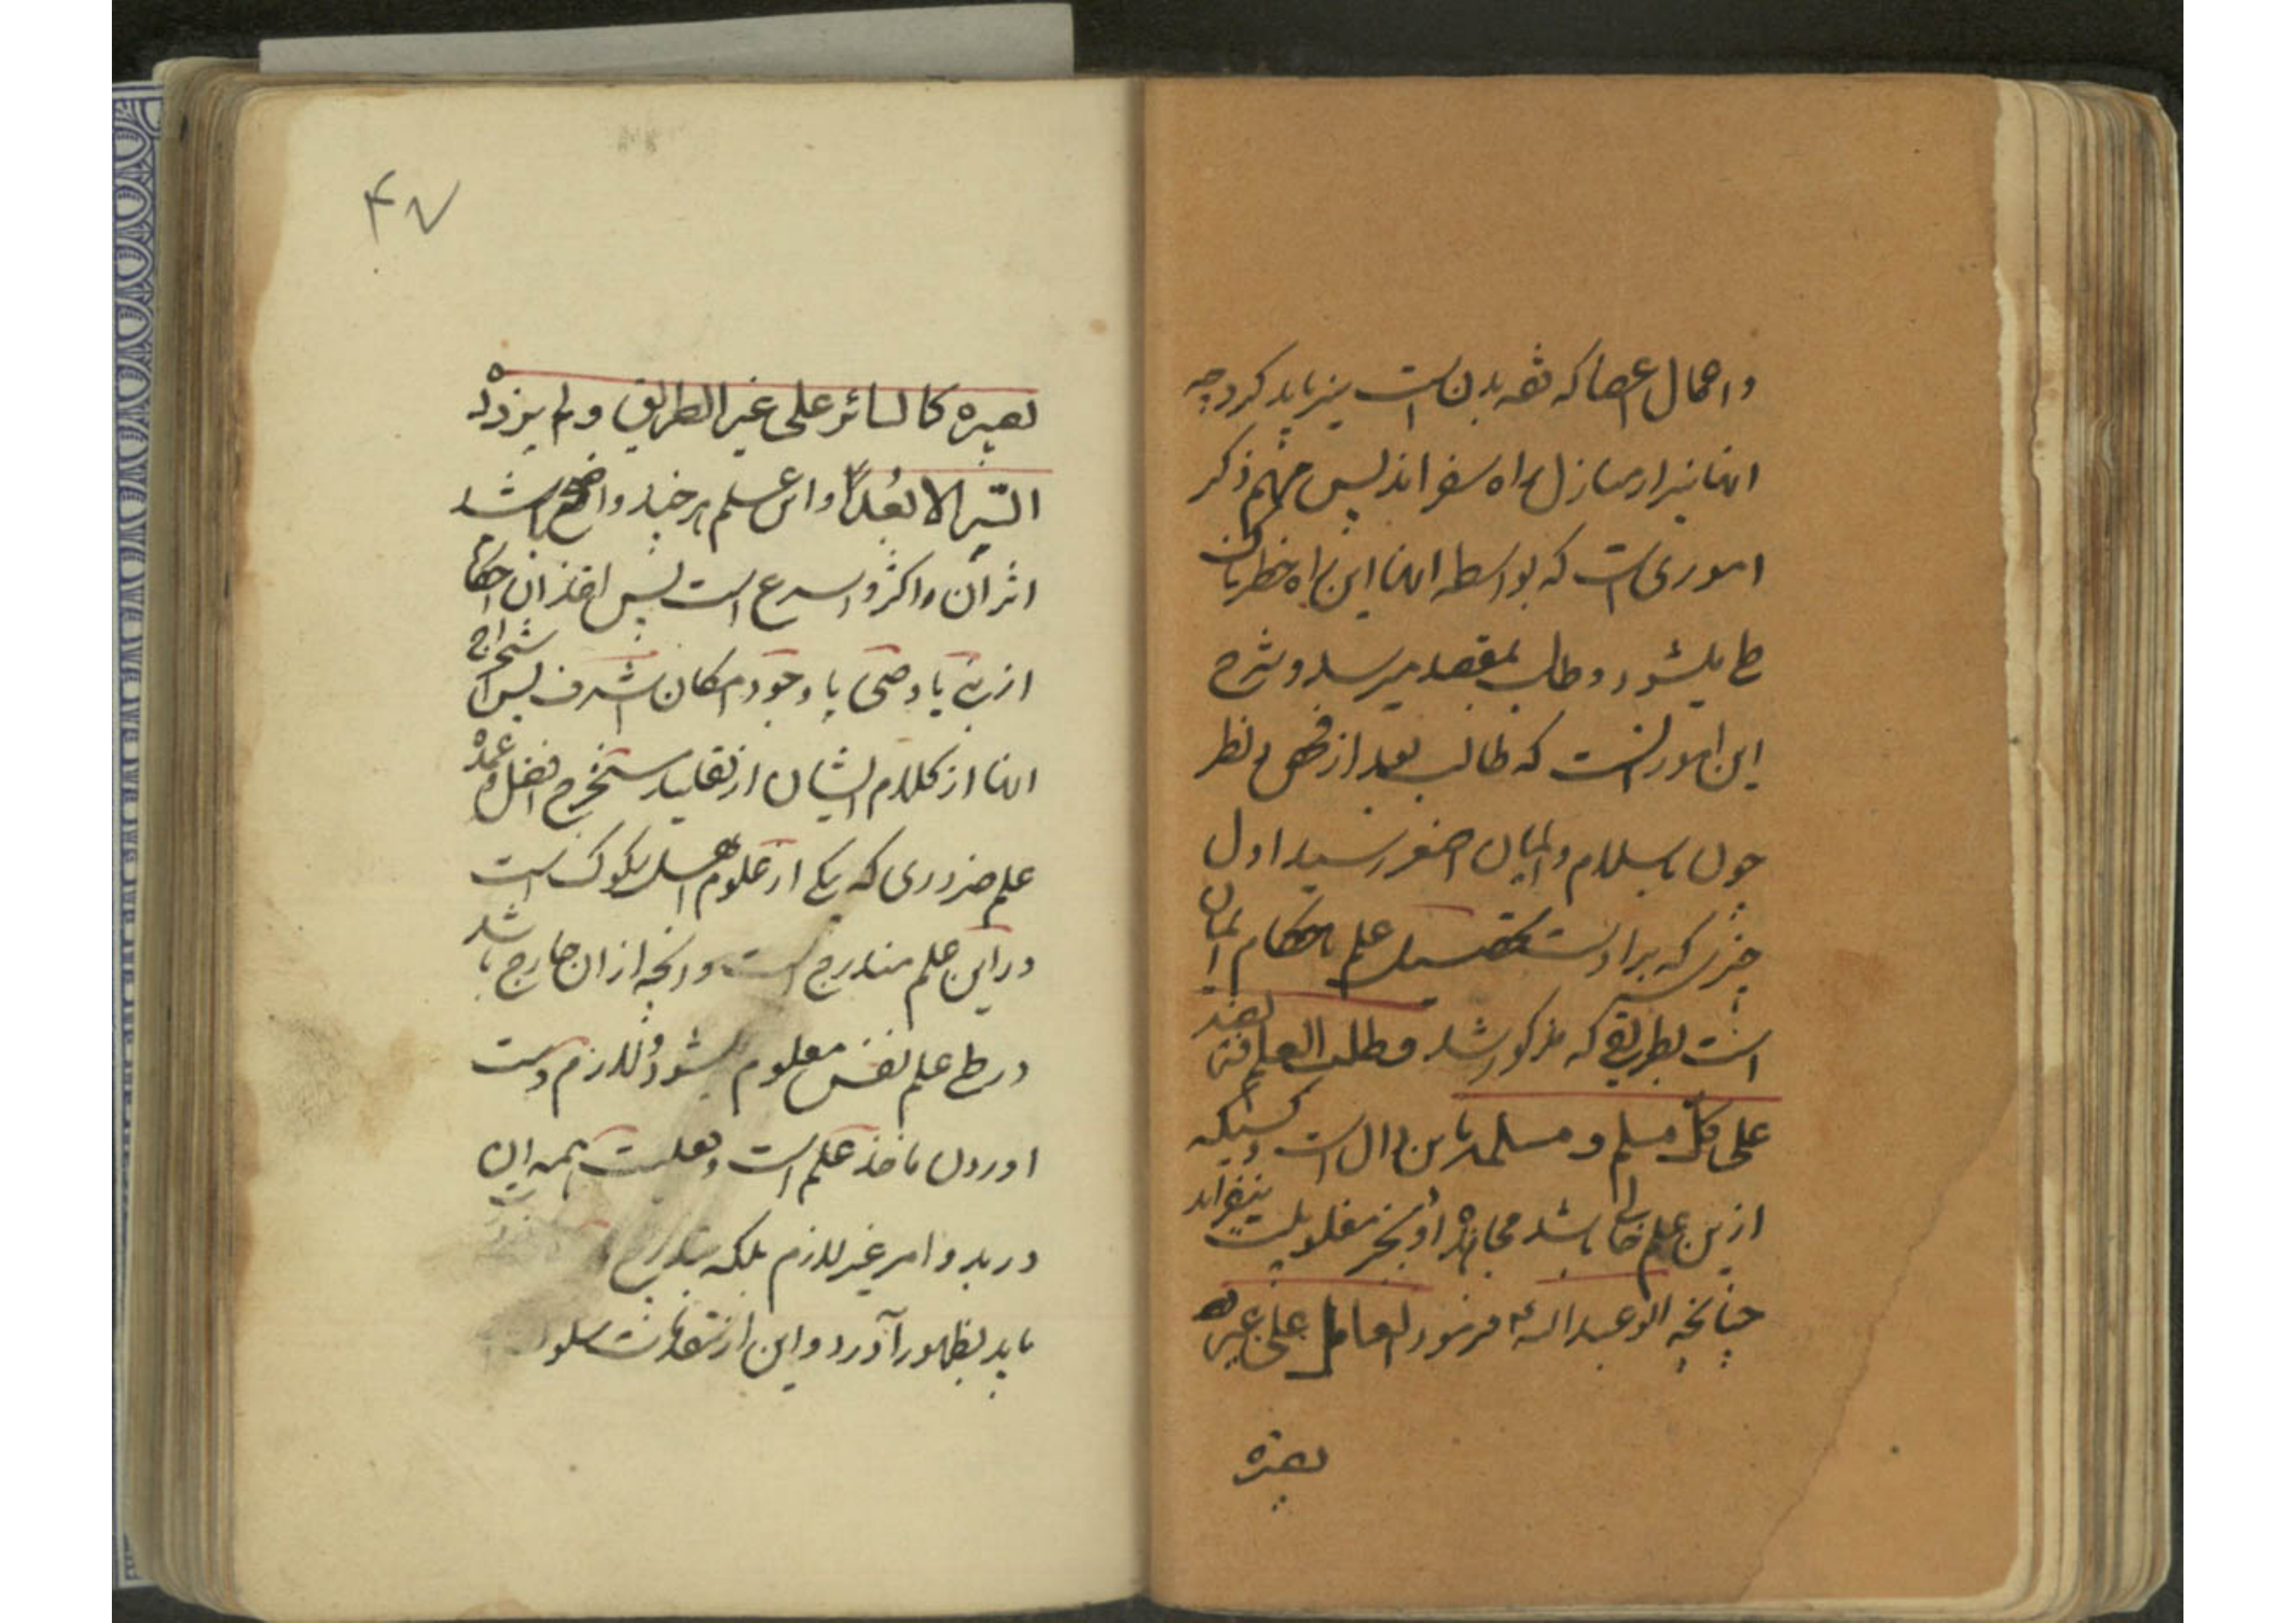 و اهمال اعضا که ثقه بدن است نیز باید کرد چه
اینها نیز از منازل راه سفراند پس مهم ذکر
اموری است که بواسطه اینها این راه خطرناک
طی میشود و طالب بمقصد میرسد و شرح
این امور انست که طالب بعد از فحص و نظر
چون باسلام و ایمان اصغر رسید اول
چیزی که بر اوست تحصیل علم باحکام ایمان
است بطریقی که مذکور شد و طلب العلم فریضة
علی کل مسلم و مسلمة باین دال است و کسیکه
ازین علم خالی باشد مجاهده او بجز مغلوبیت نیفزاید
چنانچه ابو عبدالله ع فرمود العامل علی غیر
بصیرة
۴۷
بصیرة کالسائر علی غیر الطریق ولم یزده
السیر الا بُعداً و این علم هر چند واضح باشد
اثر آن اکثر و اسرع است پس اخذ آن احکام
از نبی یا وصی با وجود امکان اشرف پس استخراج
اینها از کلام ایشان از تقلید مستخرج افضل و عمده
علم ضروری که یکی از علوم اهل سلوک است
در این علم مندرج است و آنچه از ان خارج باشد
در طی علم نفس معلوم میشود و لازم دست
اوردن ماخذ علم است و فعلیت همه ان
در بدو امر غیر لازم بلکه بتدریج
باید بظهور آورد و این از